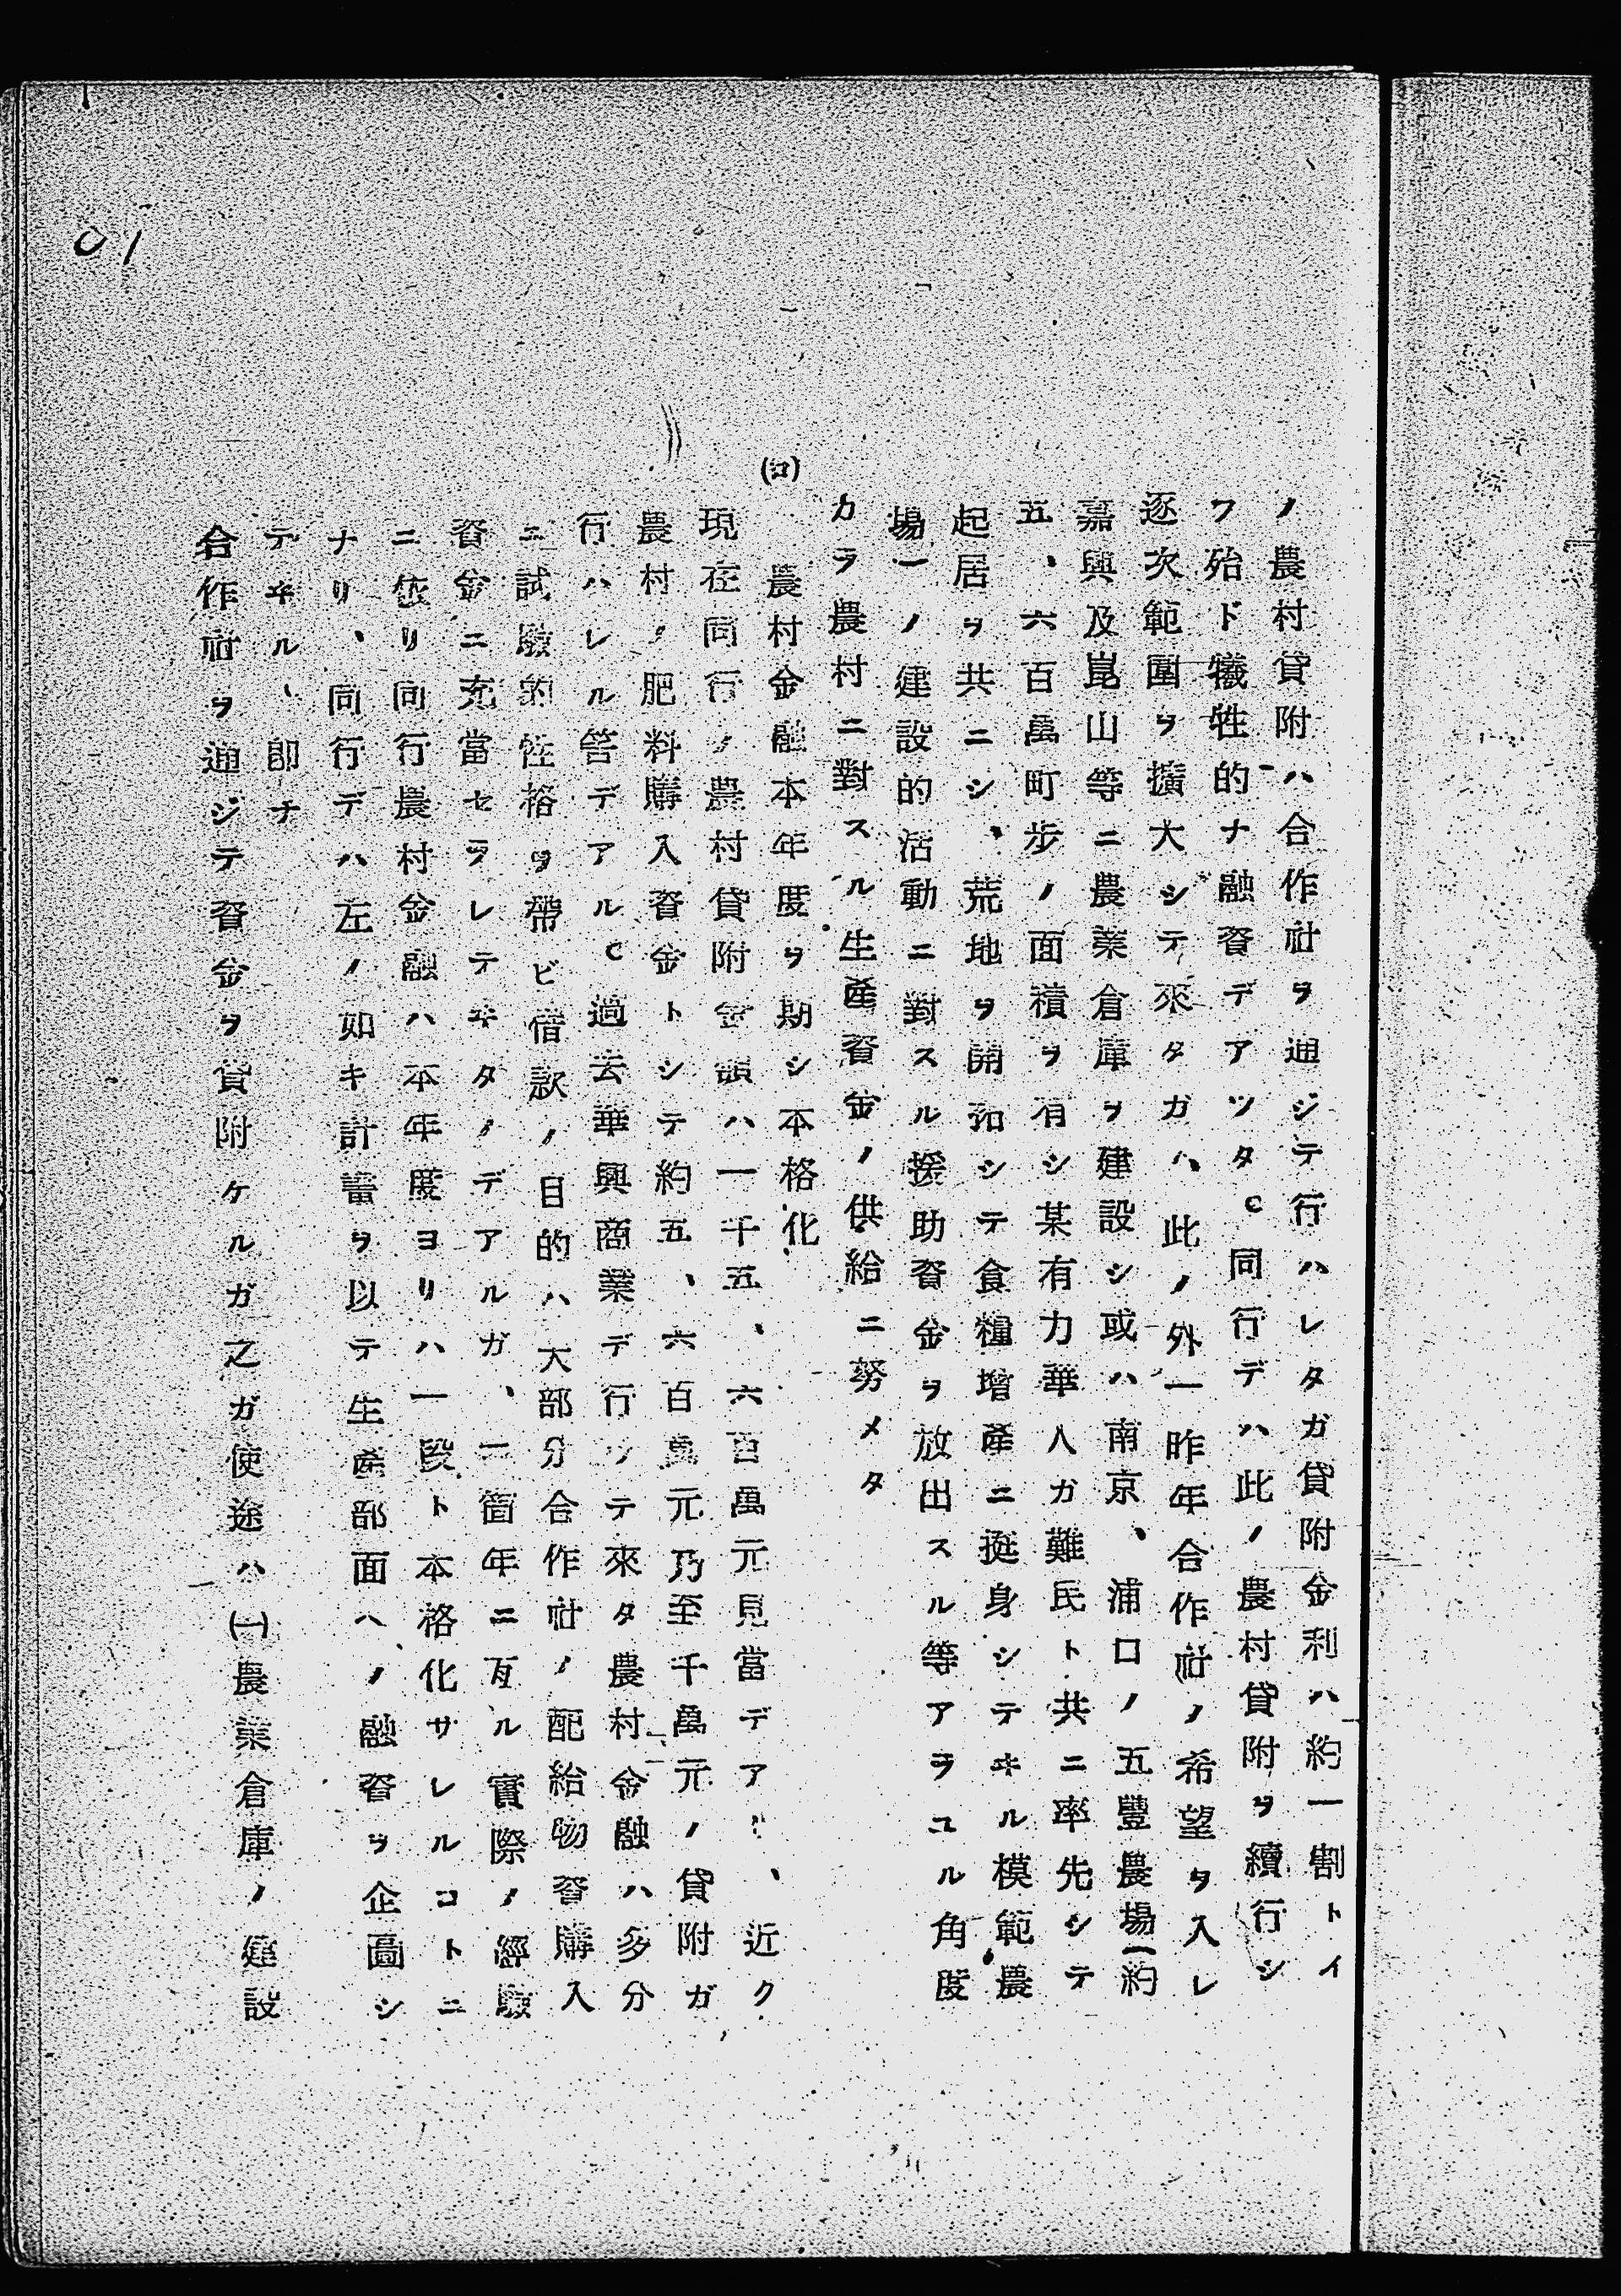 ノ農村貸附ハ合作社ヲ通ジテ行ハレタガ貸附金利ハ約一割トイ
フ殆ド犧牲的ナ融資デアツタ。同行デハ此ノ農村貸附ヲ續行シ
逐次範圍ヲ擴大シテ來タガハ、此ノ外一昨年合作社ノ希望ヲ入レ
嘉興及崑山等ニ農業倉庫ヲ建設シ或ハ南京、浦口ノ五豐農場(約
五、六百萬町步ノ面積ヲ有シ某有力華人ガ難民ト共ニ率先シテ
起居ヲ共ニシ、荒地ヲ開拓シテ食糧增產ニ挺身シテヰル模範農
場)ノ建設的活動ニ對スル援助資金ヲ放出スル等アラユル角度
カラ農村ニ對スル生產資金ノ供給ニ努メタ
(ロ) 農村金融本年度ヲ期シ本格化
現在同行ノ農村貸附金額ハ一千五、六百萬元見當デアリ、近ク
農村ノ肥料購入資金トシテ約五、六百萬元乃至千萬元ノ貸附ガ
行ハレル筈デアル。過去華興商業デ行ツテ來タ農村金融ハ多分
ニ試驗的性格ヲ帶ビ借款ノ目的ハ大部分合作社ノ配給物資購入
資金ニ充當セラレテヰタノデアルガ、二箇年ニ亙ル實際ノ經驗
ニ依リ同行農村金融ハ本年度ヨリハ一段ト本格化サレルコトニ
ナリ、同行デハ左ノ如キ計畫ヲ以テ生產部面ヘノ融資ヲ企圖シ
テヰル、卽チ
合作社ヲ通ジテ資金ヲ貸附ケルガ之ガ使途ハ(一)農業倉庫ノ建設
01